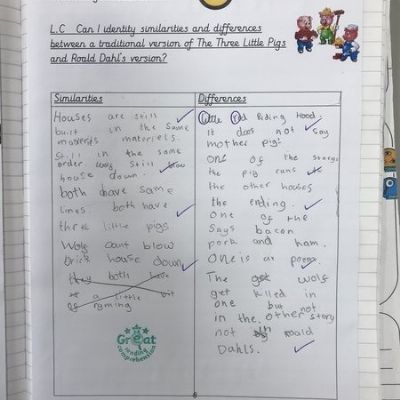 L.C Can I identify similarities and differences
between a traditional version of The Three Little Pigs
and Roald Dahl's version?
Similarities
Houses are still
built in the same
materiels.
still in the same
order. Wolf still blow
house down.
both have same
lines. both have
three little pigs
Wolf cant blow
brick house down
they both have
a little bit
of ryming
Great
reading
comprehension
Differences
Little Red Riding Hood.
It does not say
mother pigs
one of the storys
the pig runs to
the other houses
the ending.
One of the
says bacon
pork and ham.
One is a poem.
The wolf
get killed in
one but not
in the other story
not roald
Dahls.